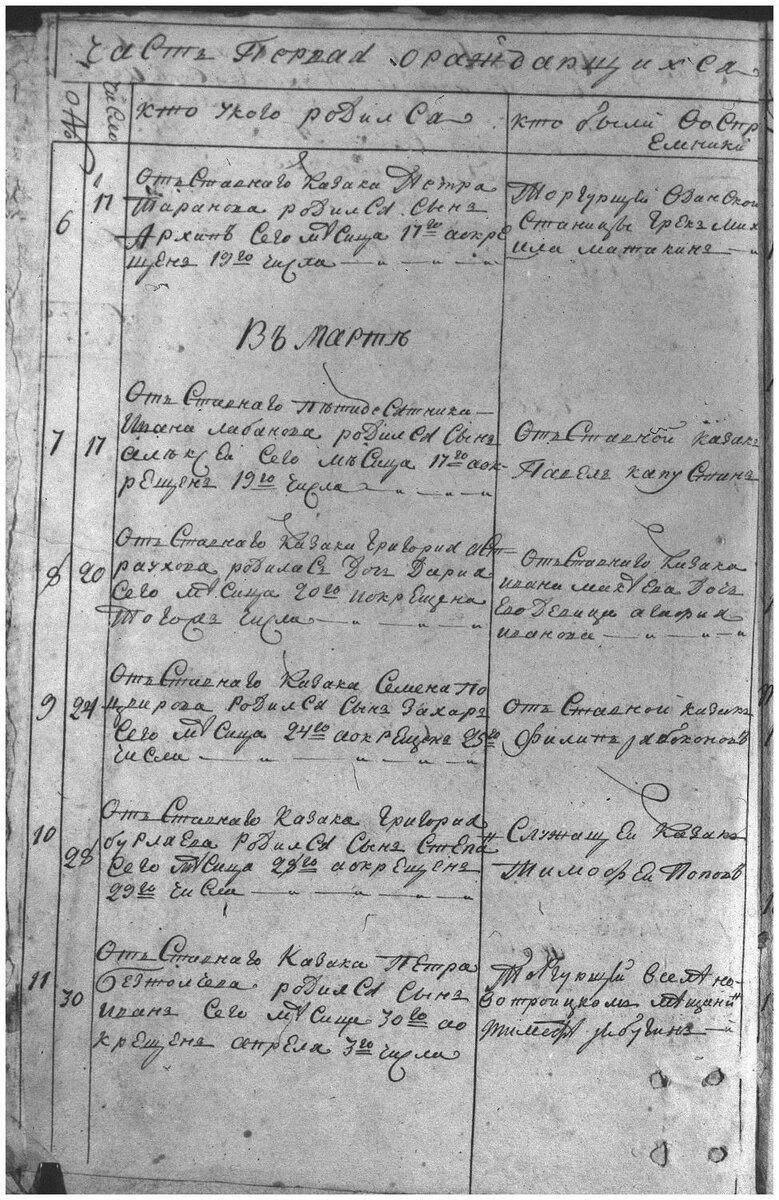 Часть Первая ораждающихся
Число
кто укого родился
кто были воспр
емники
6
17
Отъставнаго казака Петра
Таранова родился сынъ
Архипъ сего мѣсяца 17го аокре
щенъ 19го числа
Торгующей
станицы грекъ Мих
аила
Въ Мартѣ
7
17
Отъставнаго пѣтидесятника
Ивана лабанова родился сынъ
алѣксѣй сего мѣсяца 17го аок
рещенъ 19го числа
Отъставной казакъ
Павелъ капустинъ
8
20
Отъставнаго казака григория аст
раухова родилась дочь Дария
сего мѣсяца 20го иокрещена
того жъ числа
Отъставнаго казака
ивана дочь
ево девица агафия
иванова
9
24
Отъставнаго казака Семена по
родился сынъ захаръ
сего мѣсяца 24го аокрещенъ 25го
числа
Отъставной казакъ
филипъ
10
28
Отъставнаго казака григория
бурлаева родился сынъ степа
сего мѣсяца 28го аокрещенъ
29го числа
Служащей казакъ
Тимофей Поповъ
11
30
Отъставнаго казака Петра
родился сынъ
иванъ сего мѣсяца 30го ао
крещенъ апреля 3го числа
Торгующей